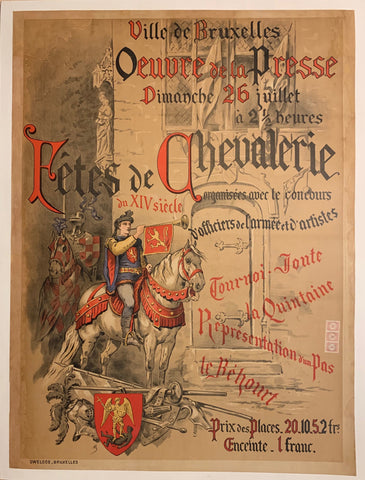 Ville de Bruxelles
Oeuvre de la Presse
Dimanche 26 juillet
à 2½ heures
Fêtes de Chevalerie
du XIV siècle
organisées avec le concours
d'officiers de l'armée et d'artistes
Tournoi-Joute
la Quintaine
Représentation d'un Pas
le Béhourt
Prix des Places. 20.10.5.2 frs
Enceinte. 1 franc.
BRUXELLES